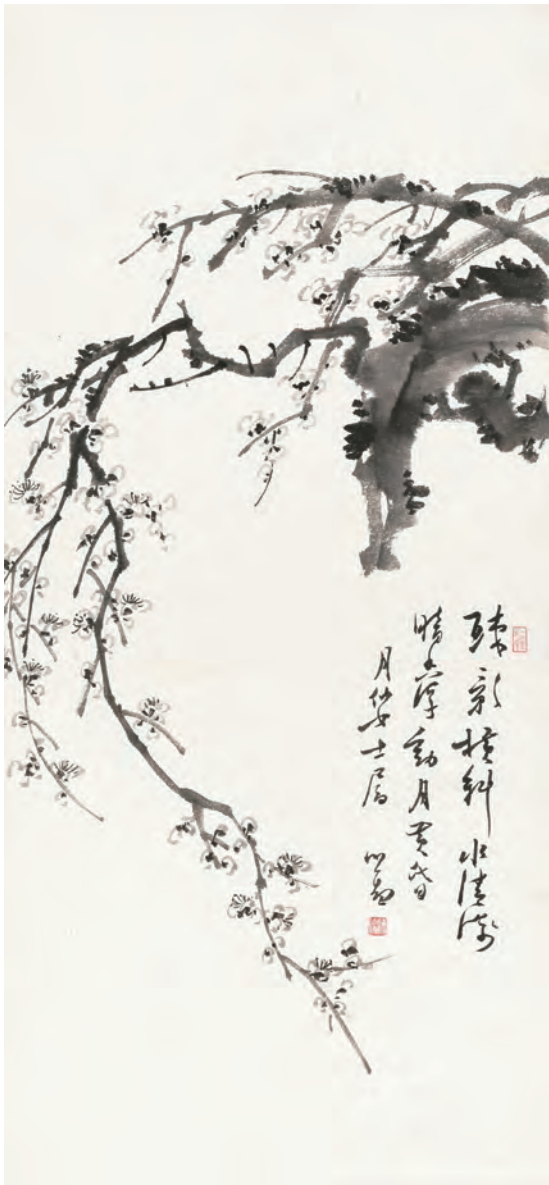 疎影橫斜水清淺
暗香浮動月黃昏
月仙女士属